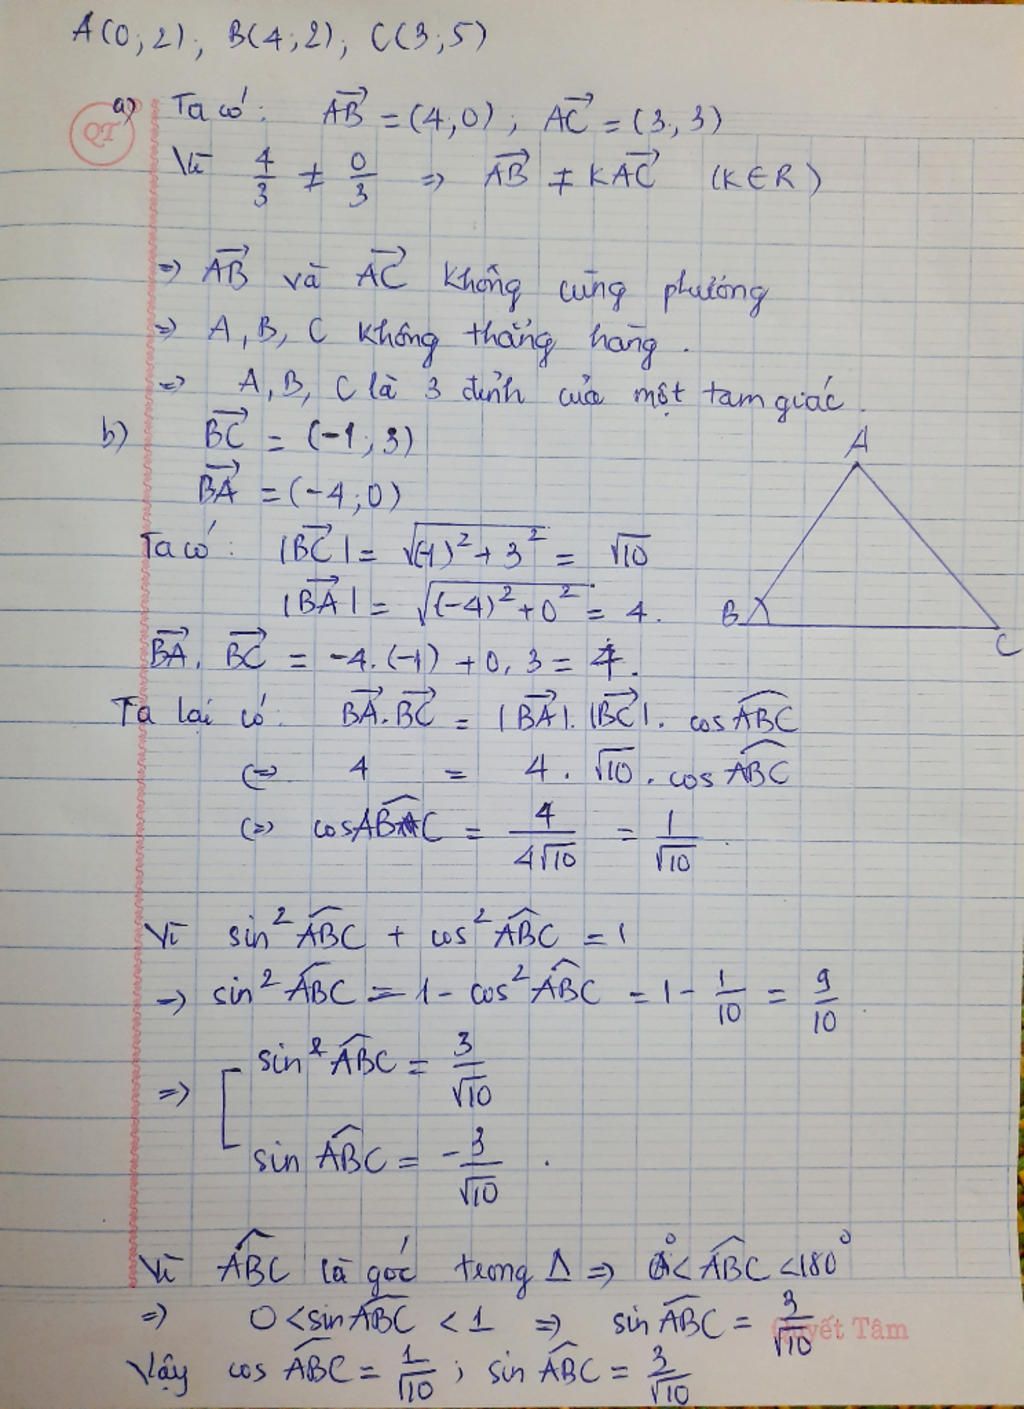 A(0;2), B(4;2), C(3;5)
QT
a) Ta có: AB→ = (4;0), AC→ = (3;3)
Vì 4/3 ≠ 0/3 => AB→ ≠ KAC→ (K∈R)
=> AB→ và AC→ không cùng phương
=> A, B, C không thẳng hàng.
=> A, B, C là 3 đỉnh của một tam giác.
b) BC→ = (-1;3)
BA→ = (-4;0)
Ta có: |BC→| = √((-1)² + 3²) = √10
|BA→| = √((-4)² + 0²) = 4.
BA→. BC→ = -4.(-1) + 0.3 = 4.
A
B
C
Ta lại có: BA→.BC→ = |BA→|.|BC→|. cos ABC
(=> 4 = 4. √10. cos ABC
(=> cos ABC = 4/4√10 = 1/√10.
Vì sin² ABC + cos² ABC = 1
=> sin² ABC = 1 - cos² ABC = 1 - 1/10 = 9/10
=> [ sin² ABC = 3/√10
sin ABC = -3/√10.
Vì ABC là góc trong Δ => 0° < ABC < 180°
=> 0 < sin ABC < 1 => sin ABC = 3/√10
Quyết Tâm
Vậy cos ABC = 1/√10 ; sin ABC = 3/√10